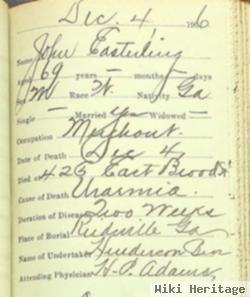 Dec. 4 1906
Name John Easterling
Aged 69 years - months - days
Sex M Race W. Nativity Ga
Single - Married yes Widowed -
Occupation Merchant
Date of Death Dec 4
Died at 426 East Broad St
Cause of Death Uraemia
Duration of Disease Two Weeks
Place of Burial Reidville Ga
Name of Undertaker Henderson Bro
Attending Physician H. P. Adams
Wiki Heritage